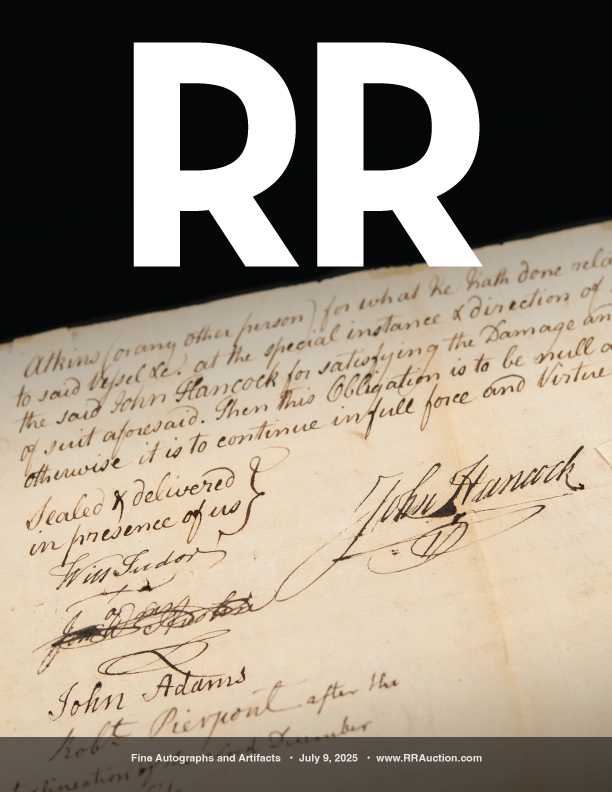 RR
Atkins (or any other person) for what he hath done rela
to said Vessel &c. at the special instance & direction of
the said John Hancock for satisfying the Damage an
of suit aforesaid. Then this Obligation is to be null a
otherwise it is to continue in full force and Virtue
Sealed & delivered
in presence of us
Will Tudor
John Hancock
John Adams
Robt. Pierpont after the
December
Fine Autographs and Artifacts • July 9, 2025 • www.RRAuction.com